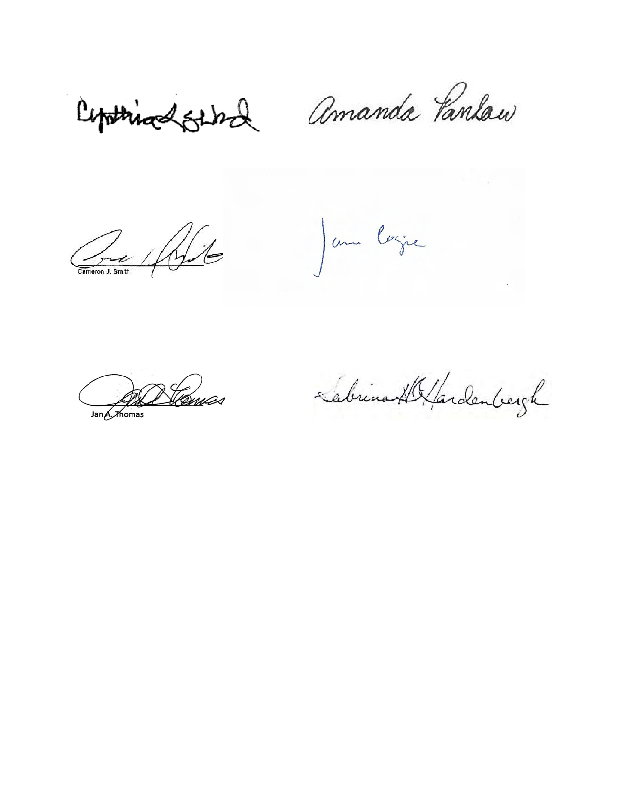 Cynthia
Amanda Panlaw
Cameron J. Smith
Jane Cogie
Jan A. Thomas
Sabrina H. Hardenbergh